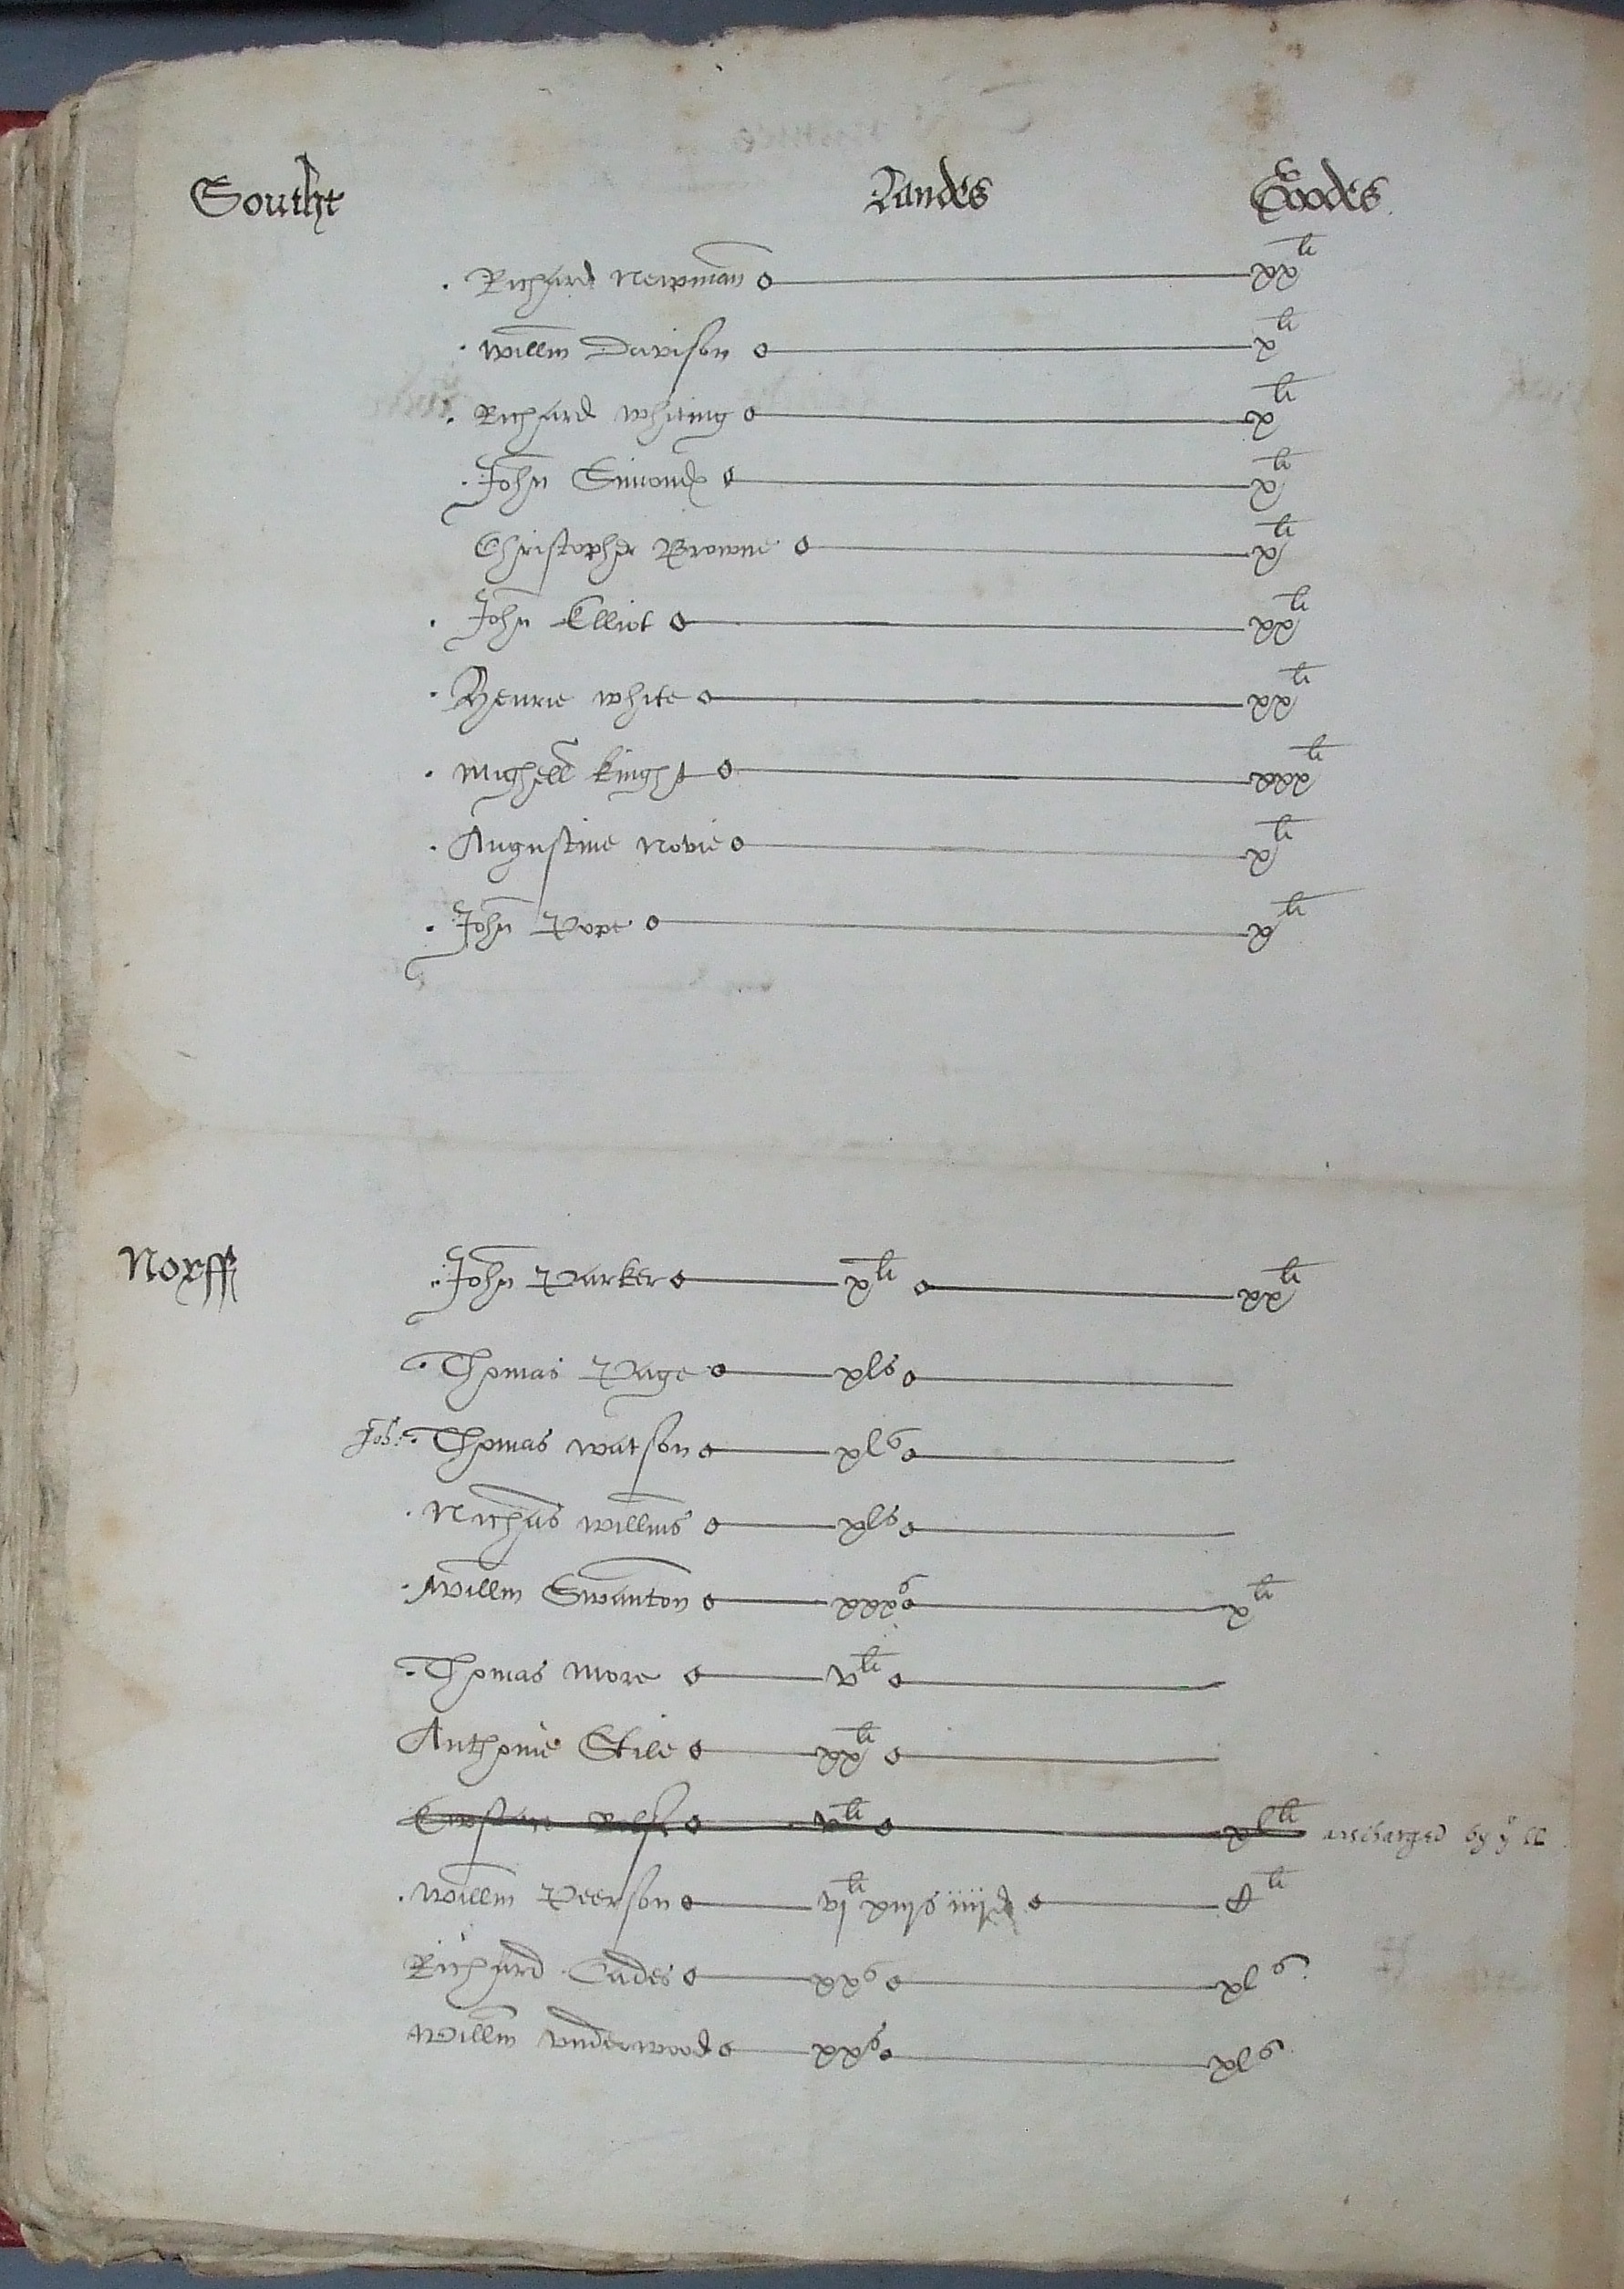 Southt Landes Goodes
Richard Newman xx li
Willm Davison x li
Richard Whiting x li
John Simondes x li
Christopher Browne x li
John Elliot xx li
Henrie White xx li
Mighell Kinght xxx li
Augustine Novie x li
John Pope x li
Norff John Parker x li xx li
Thomas Page xls
Joh: Thomas Watson xls
Nichas Willms xls
Willm Swanton xxxs x li
Thomas More v li
Anthonie Stile xx li
v li xl li discharged by ye ll
Willm Peerson vj li xiijs iiijd x li
Richard Cades xxs xls
Willm Underwood xxs xls